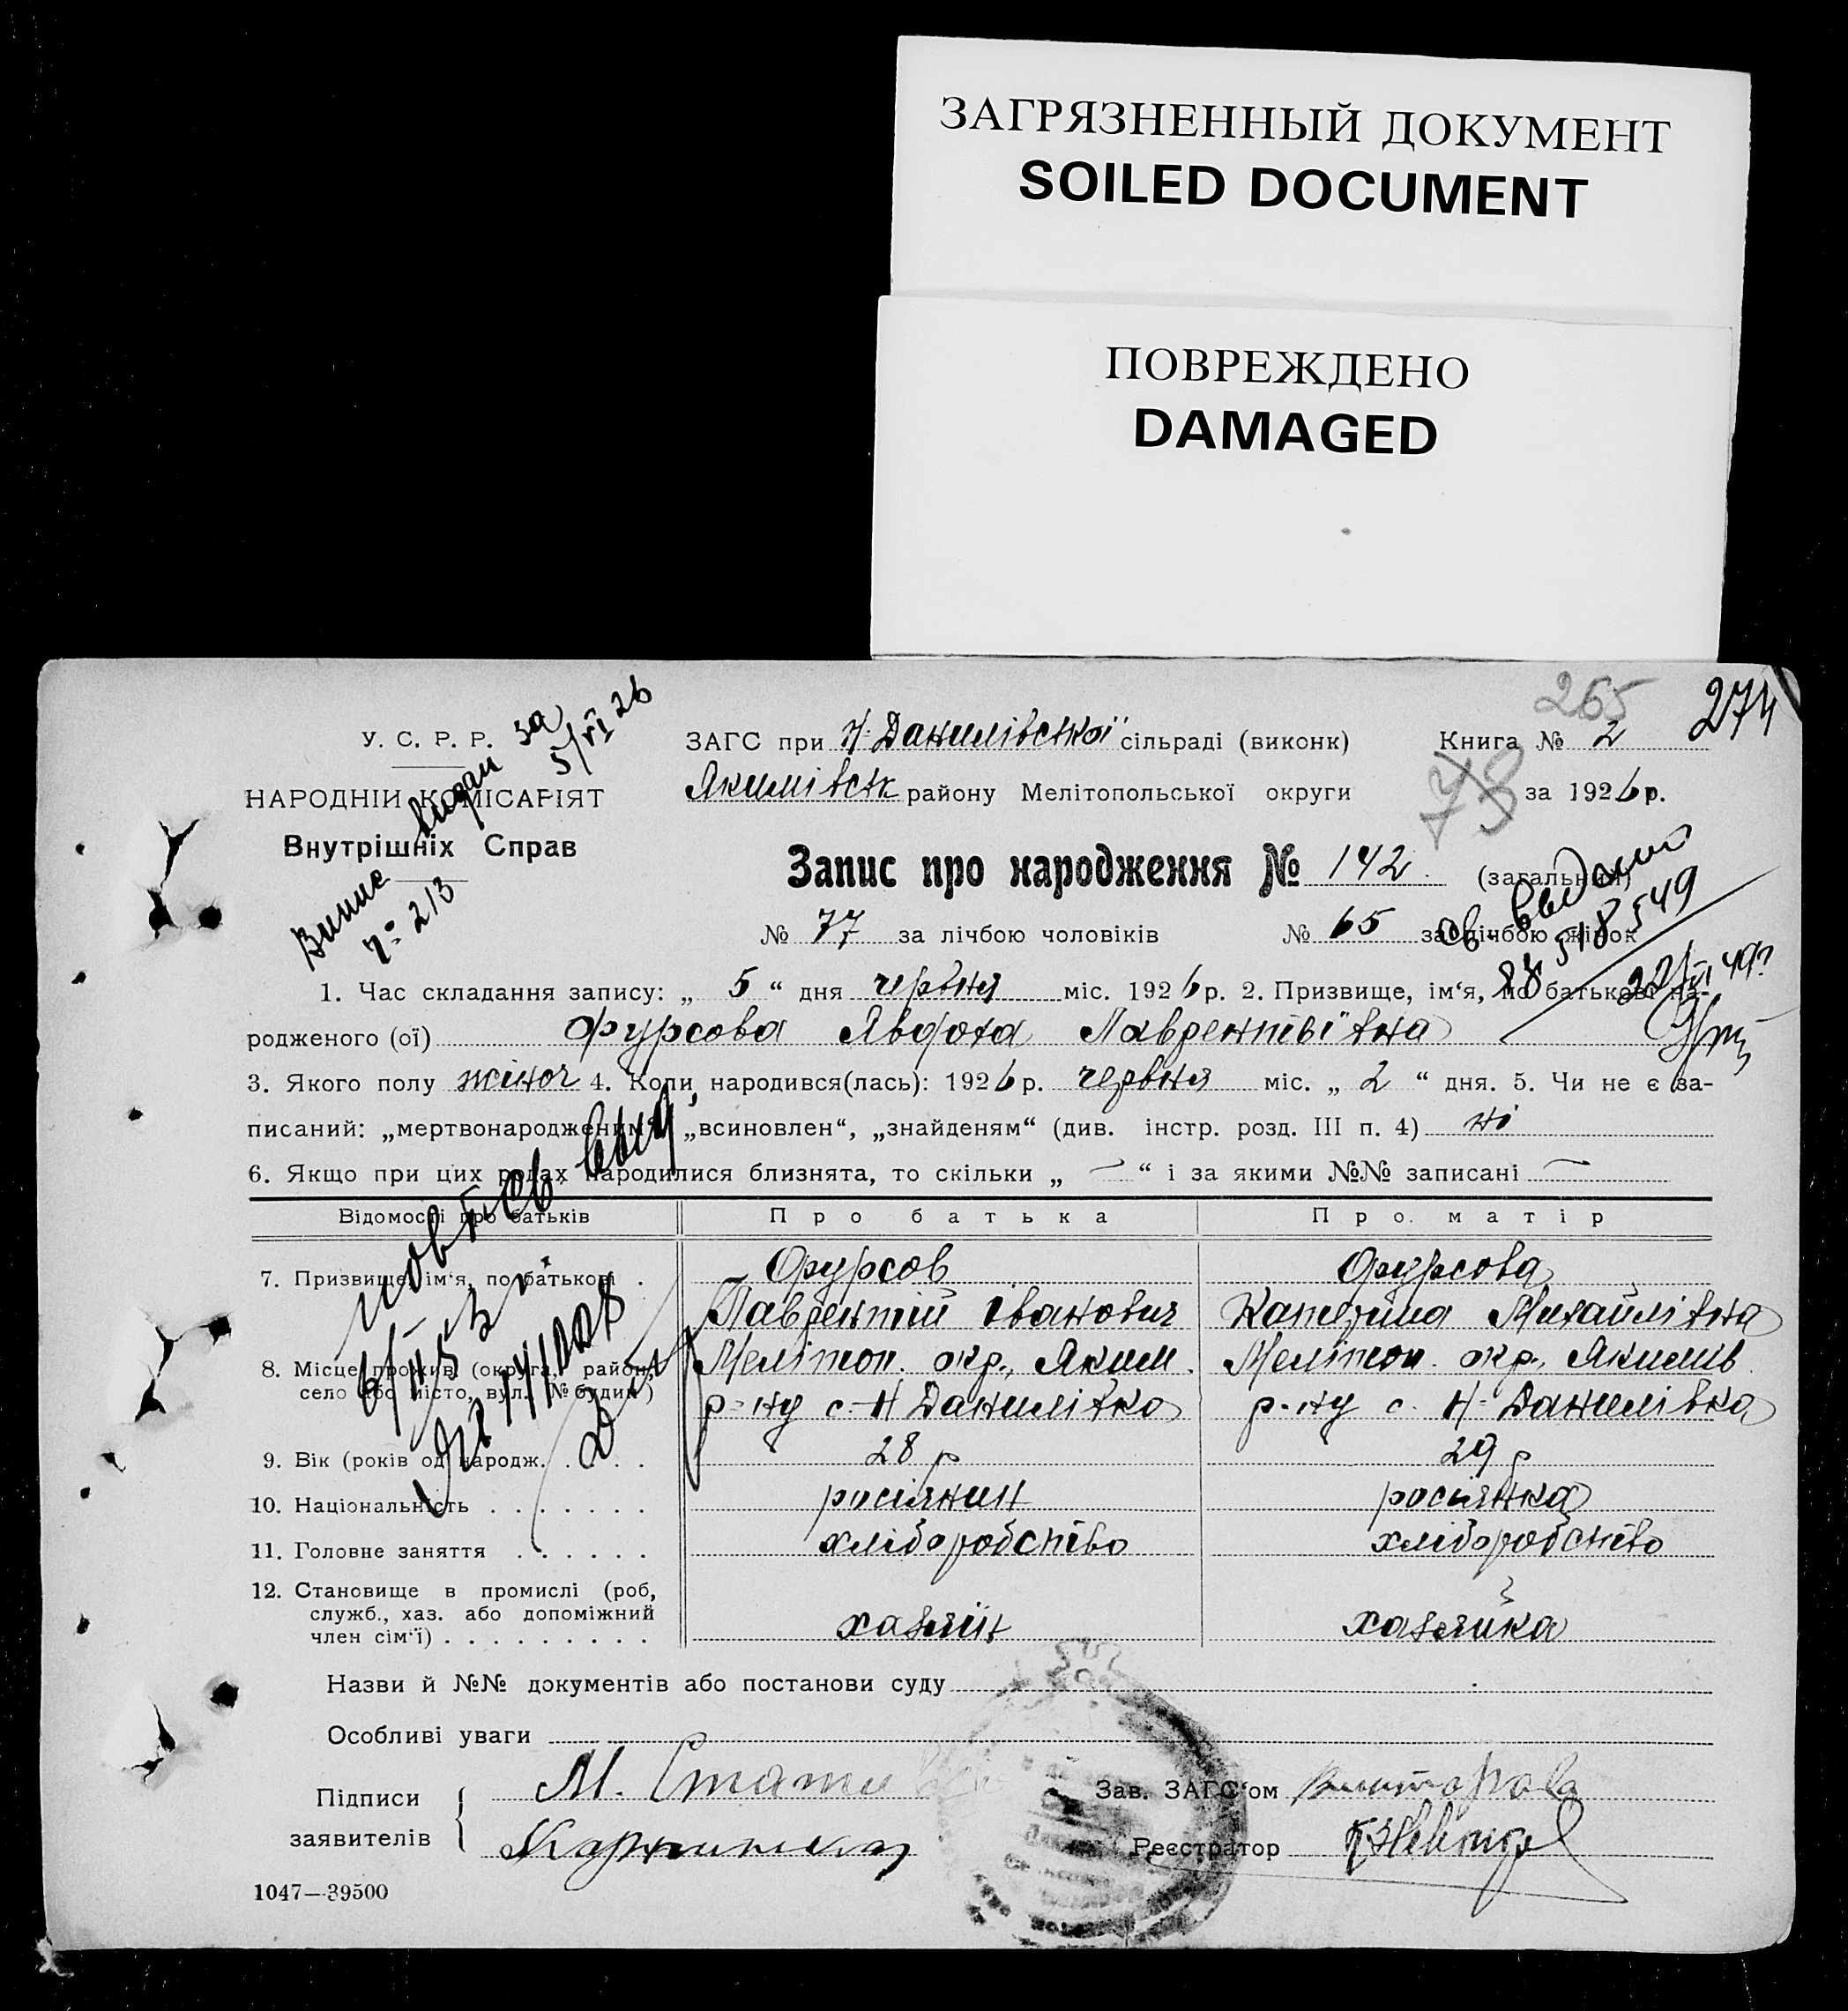 ЗАГРЯЗНЕННЫЙ ДОКУМЕНТ
SOILED DOCUMENT
ПОВРЕЖДЕНО
DAMAGED
265 274
У. С. Р. Р.
НАРОДНІЙ КОМІСАРІЯТ
Внутрішніх Справ
за 5/VI 26
№ 213
ЗАГС при Н-Данилівської сільраді (виконк) Книга № 2
Якимівськ району Мелітопольської округи за 1926 р.
73
Запис про народження № 142. (загальний)
№ 77 за лічбою чоловіків № 65 за лічбою жінок
св. выдано
518549
1. Час складання запису: „ 5 “ дня червня міс. 1926 р. 2. Призвище, ім‘я, по батькові на-
родженого (ої) Фурсова Явдоха Лаврентіївна
3. Якого полу жіноч 4. Коли народився(лась): 1926 р. червня міс. „ 2 “ дня. 5. Чи не є за-
писаний: „мертвонародженим“, „всиновлен“, „знайденям“ (див. інстр. розд. III п. 4) ні
6. Якщо при цих родах народилися близнята, то скільки „ — “ і за якими №№ записані —
Відомості про батьків Про батька Про матір
7. Призвище, ім‘я, по батькові . Фурсов Фурсова
Лаврентій Іванович Катерина Михайлівна
8. Місце прожив. (округа, район, Мелітоп. окр., Яким. Мелітоп. окр., Якимів.
село або місто, вул. № будин.) р-ну с.-Н Данилівка р-ну с. Н-Данилівка
9. Вік (років од народж. . . . . 28 р 29 р
10. Національність . . . . . . . росіянин росіянка
11. Головне заняття . . . . . . хліборобство хліборобство
12. Становище в промислі (роб,
служб., хаз. або допоміжний
член сім‘ї) . . . . . . . . . хазяїн хазяйка
Назви й №№ документів або постанови суду
Особливі уваги
Підписи
заявителів
М.
Зав. ЗАГС‘ом
Реєстратор
1047—39500